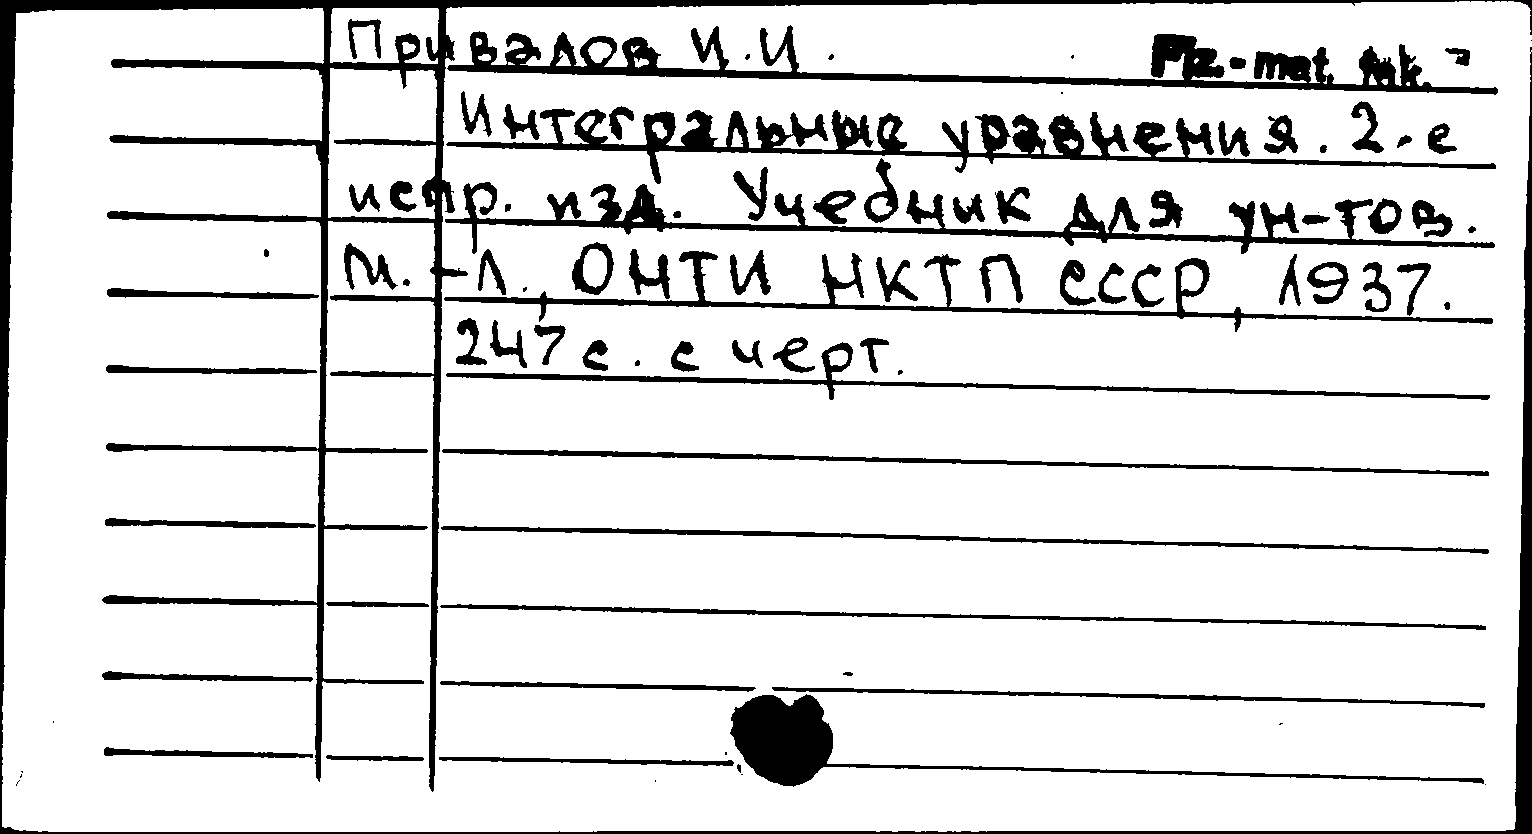 Привалов И.И. Fiz.-mat. fak.
Интегральные уравнения. 2-е
испр. изд. Учебник для ун-тов.
М.-Л., ОНТИ НКТП СССР, 1937.
247 с. с черт.